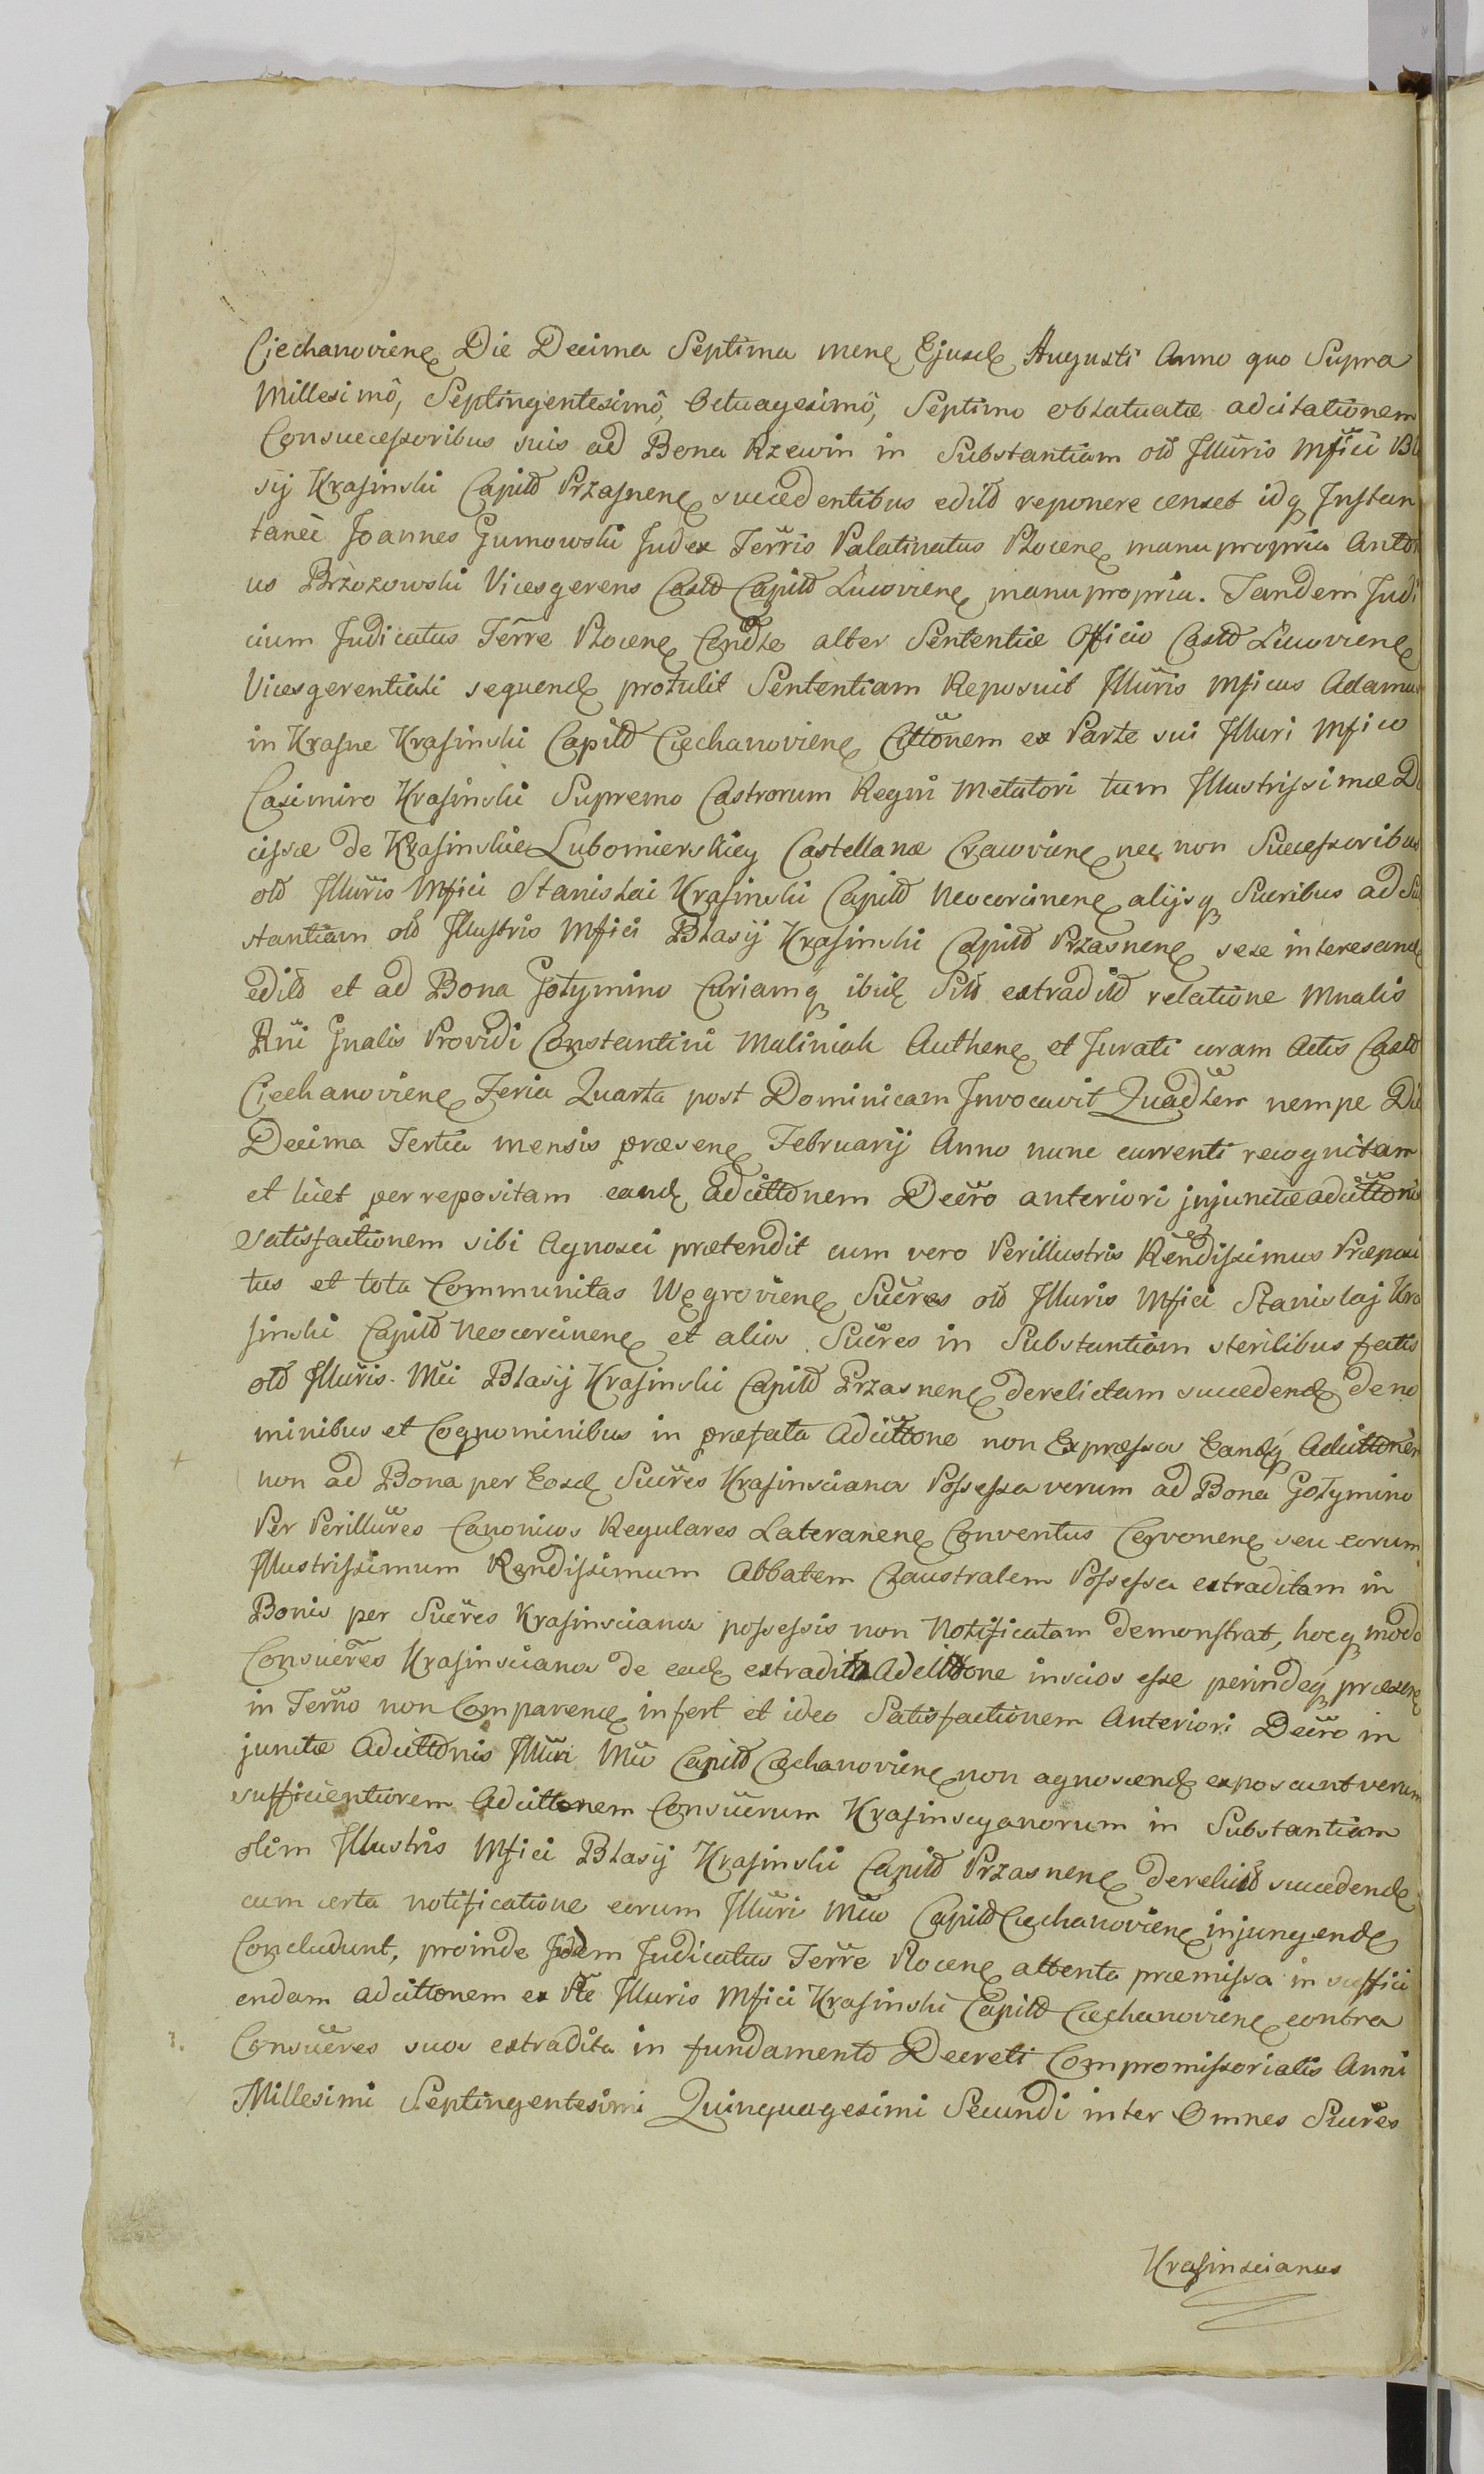 Ciechanoviene Die Decima Septima mene Ejusd Augusti Anno quo Supra
Millesimô, Septingentesimô, Octuagesimô, Septimo oblatuatæ adcitationem
Consuccessoribus suis ad Bona Rzewin in Substantiam old Illuris Mfici Bla
sij Krasinski Capitd Przasnene succedentibus editd reponere censet idq Instan
tanei Joannes Gumowski Judex Terris Palatinatus Plocene manu propria Anto
us Brzozowski Vicesgerens Castd Capitd Lucoviene manu propria. Tandem Judi
cium Judicatus Terre Plocene alter Sententiæ Officio Castd Lucoviene
Vicesgerentiati sequend protulit Sententiam Reposuit Illuris Mficus Adamus
in Krasne Krasinski Capitd Ciechanoviene Cittonem ex Parte sui Illuri Mfico
Casimiro Krasinski Supremo Castrorum Regni Metatori tum Illustrissimæ Du
cissæ de Krasinskie Lubomierskiey Castellanæ Cracoviene nec non Successoribus
old Illuris Mfici Stanislai Krasinski Capitd Neocorcinene alijsq Sucribus ad Sub
stantiam old Illustris Mfici Blasij Krasinski Capitd Przasnene sese interesand
editd et ad Bona Gołymino Curiamq ibid Sitd extraditd relatione Mnalis
Rni Gnalis Providi Constantini Maliniak Authene et Jurati coram Actis Castd
Ciechanoviene Feria Quarta post Dominicam Invocavit Quadlem nempe Die
Decima Tertia mensis præsene Februarij Anno nunc currenti recognitam
et licet per repositam eand Adcittonem Decro anteriori injunctæ adcittonis
Satisfactionem sibi Agnosci prætendit cum vero Perillustris Rendissimus Præposi
tus et tota Communitas Węgroviene Sucres old Illuris Mfici Stanislaj Kra
sinski Capitd Neocorcinene et alios Sucres in Substantiam sterilibus fatis
old Illuris Mci Blasij Krasinski Capitd Przasnene derelictam succedend de no
minibus et Cognominibus in præfata Adcittone non Expressos Eandq Adcittonem
non ad Bona per Eosd Sucres Krasinscianos Possessa verum ad Bona Gołymino
Per Perillures Canonicos Regulares Lateranene Conventus Cervonene seu eorum
Illustrissimum Rendissimum Abbatem Claustralem Possessa extraditam in
Bonis per Sucres Krasinscianos possessis non Notificatam demonstrat, hocq modo
Consucres Krasinscianos de ead extradita Adcittone inscios esse perindeq præsene
in Termo non Comparene infert et ideo Satisfactionem Anteriori Decro in
junctæ Adcittonis Illuri Mco Capitd Ciechanoviene non agnoscend exposcunt verum
sufficientiorem Adcittonem Consucrum Krasinscyanorum in Substantiam
olim Illustris Mfici Blasij Krasinski Capitd Przasnene derelictd succedend
cum certa notificatione eorum Illuri Mco Capitd Ciechanoviene injungend
Concludunt, proinde Judm Judicatus Terre Plocene attenta præmissa in suffici
endam adcittonem ex Pte Illuris Mfici Krasinski Capitd Ciechanoviene contra
Consucres suos extradita in fundamento Decreti Compromissorialis Anni
Millesimi Septingentesimi Quinquagesimi Secundi inter Omnes Sucres
Krasinscianos